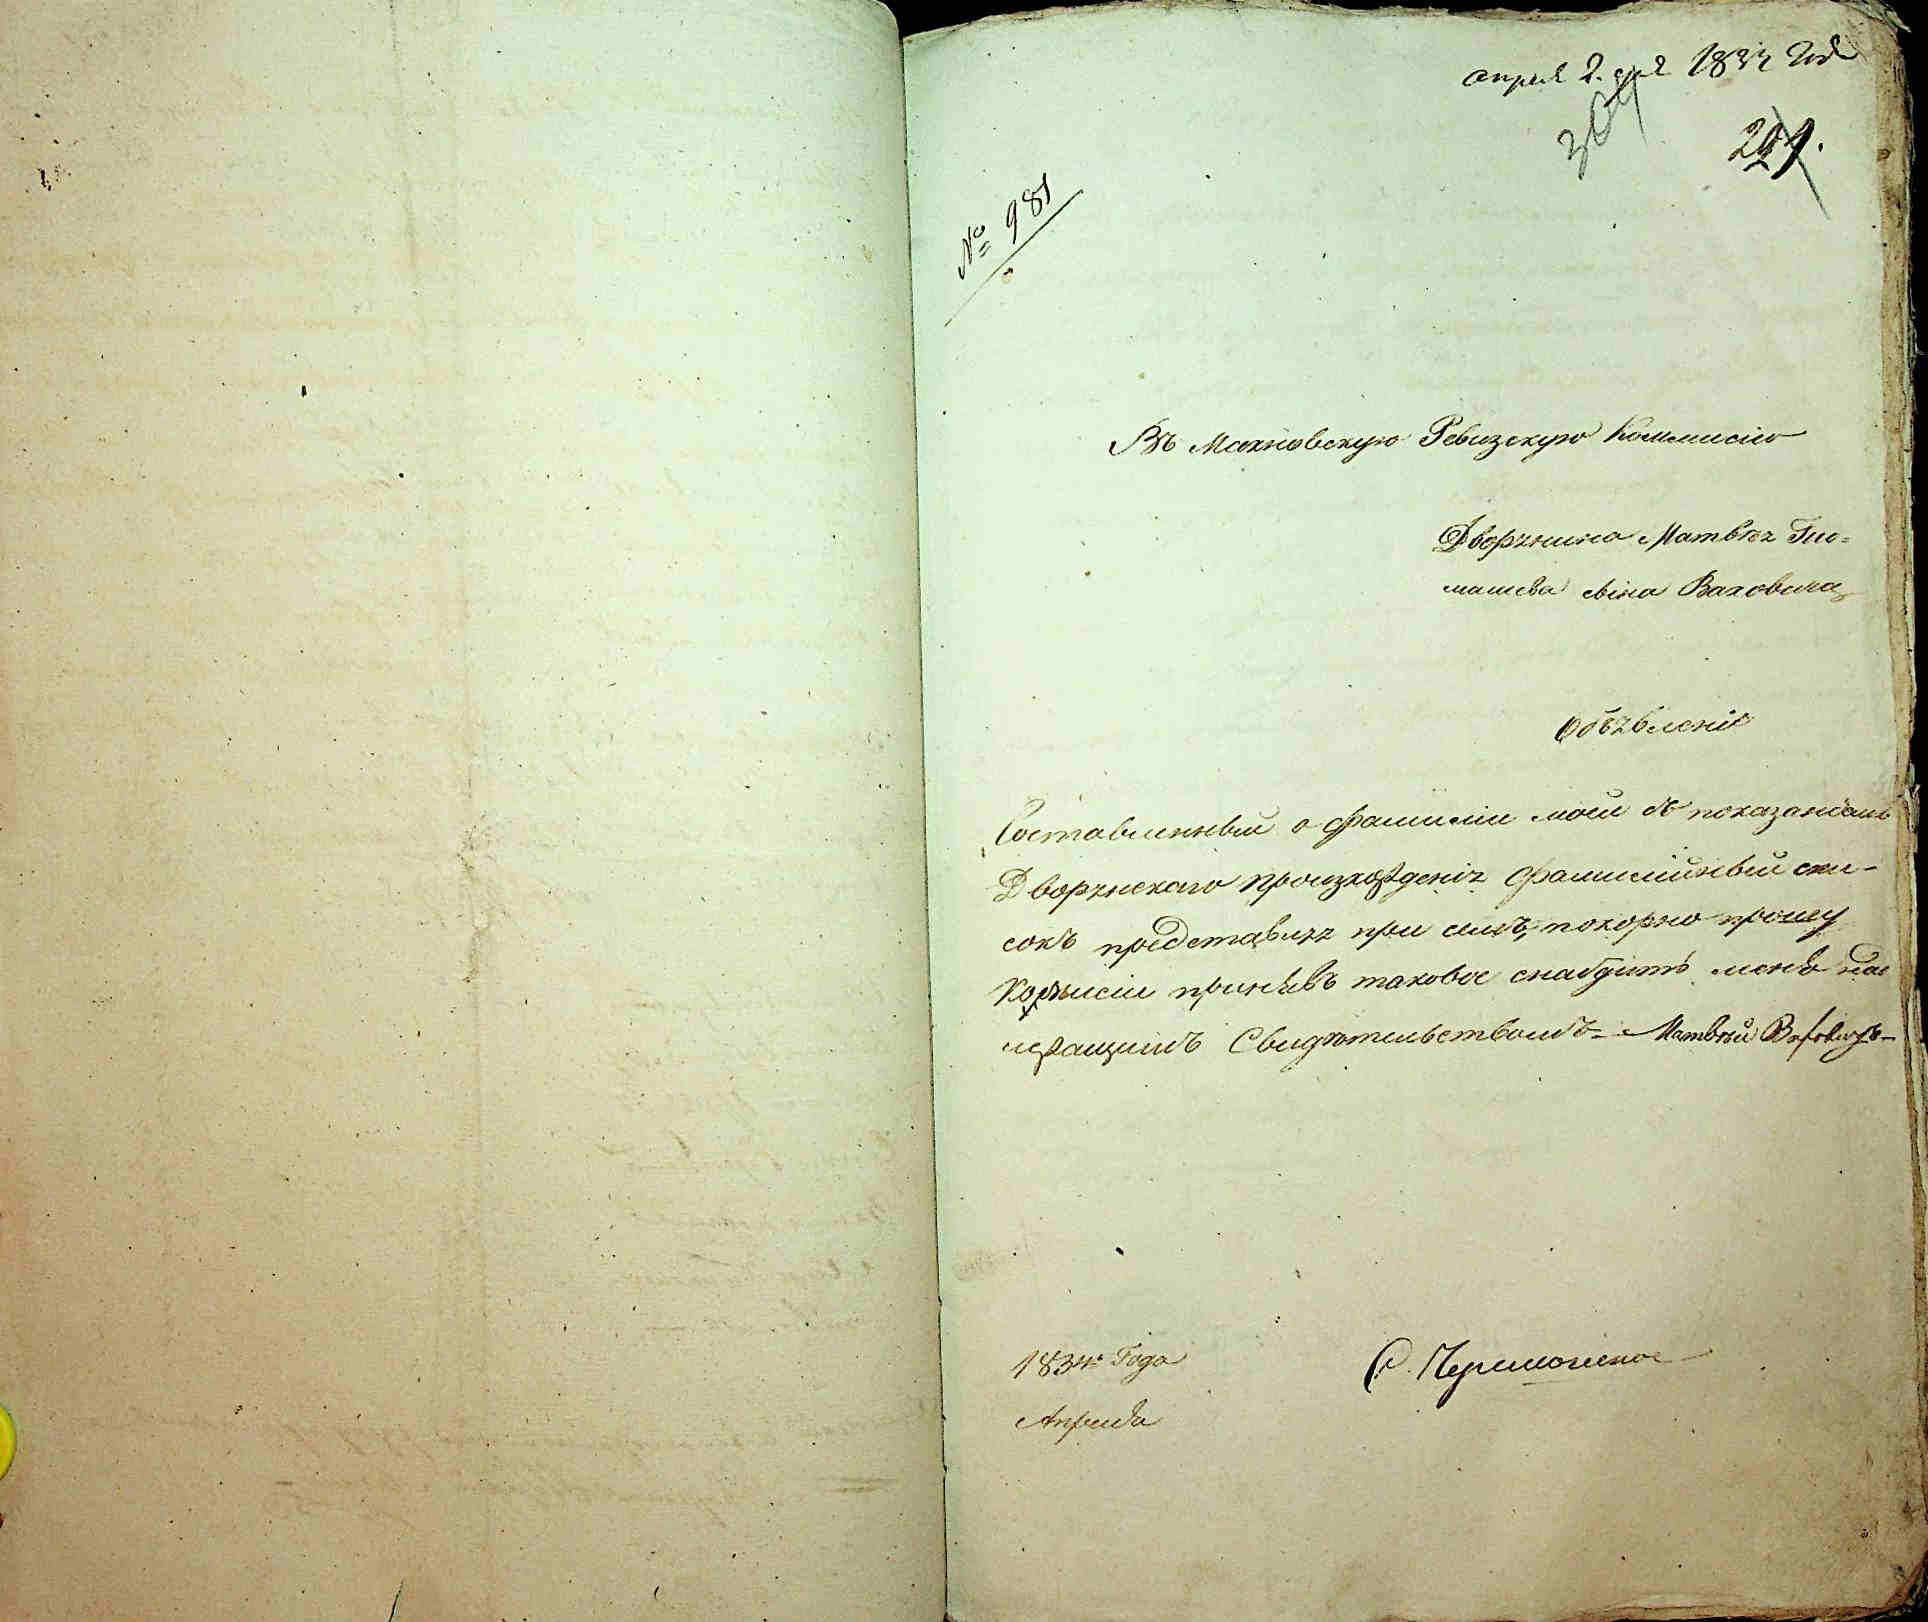 апреля 2. дня 1834 Года
304
№ 981
Въ Махновскую Ревизскую Коммисію
Дворянина Матвѣя Тио-
машева сына Ваховича
Объявленіе
Составленный о фамиліи моей съ показаніемъ
Дворянскаго произхожденія фамилійный спи-
сокъ представляя при семъ, покорно прошу
Комисіи принявъ таковое снабдить меня над
лежащимъ Свидѣтельствомъ Матвѣй
1834го Года
Апреля